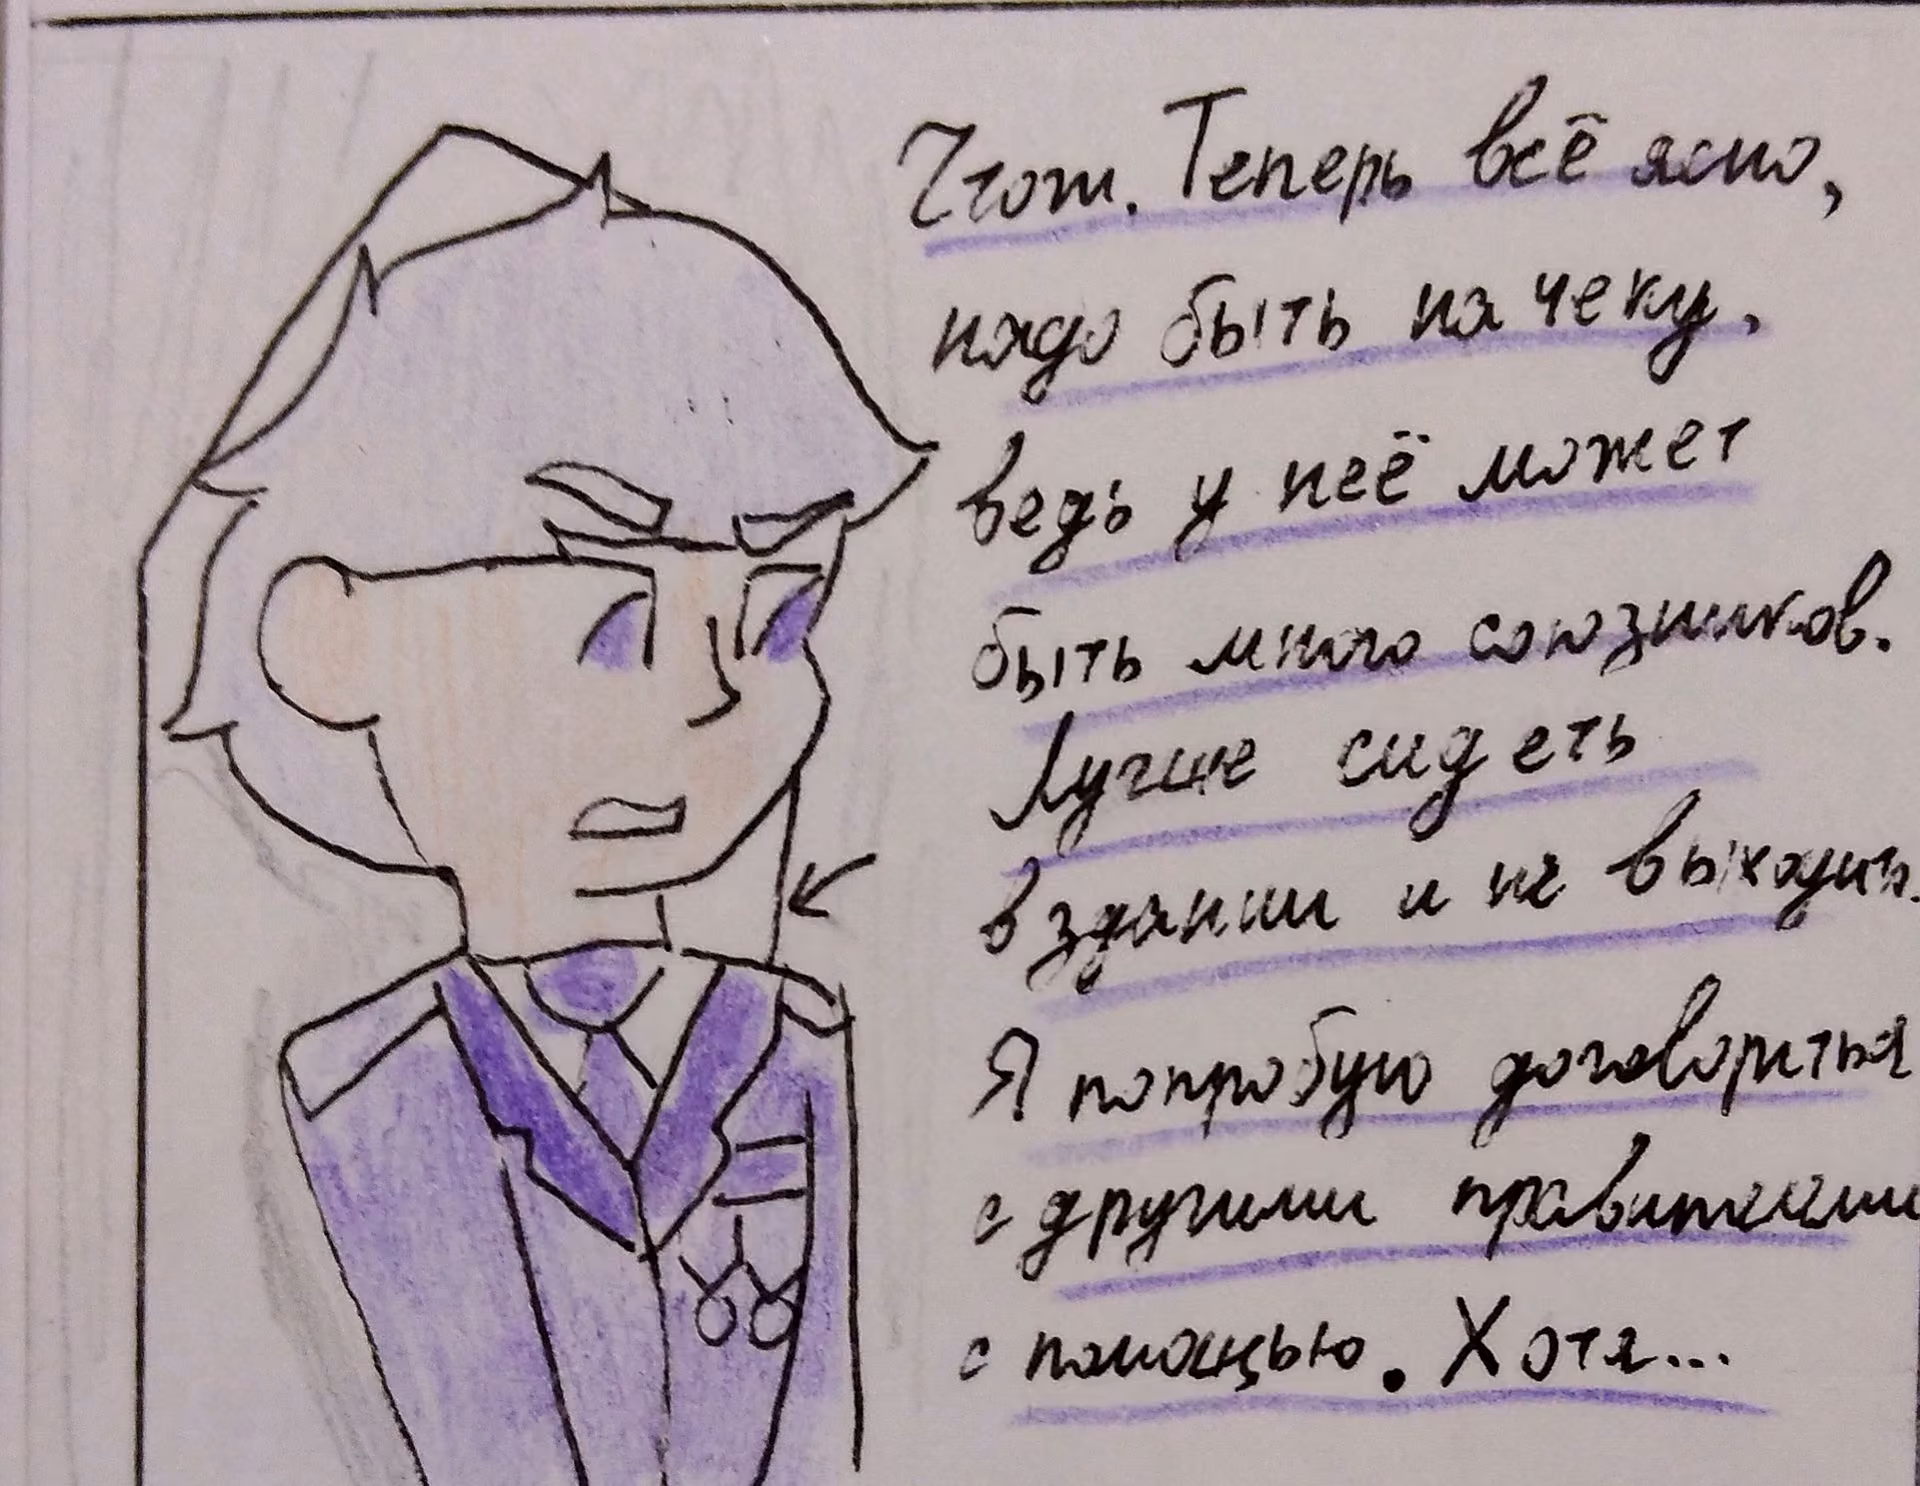 Чтож. Теперь всё ясно,
надо быть на чеку,
ведь у неё может
быть много союзников.
Лучше сидеть
в здании и не выходить.
Я попробую договориться
с другими правителями
с помощью. Хотя...